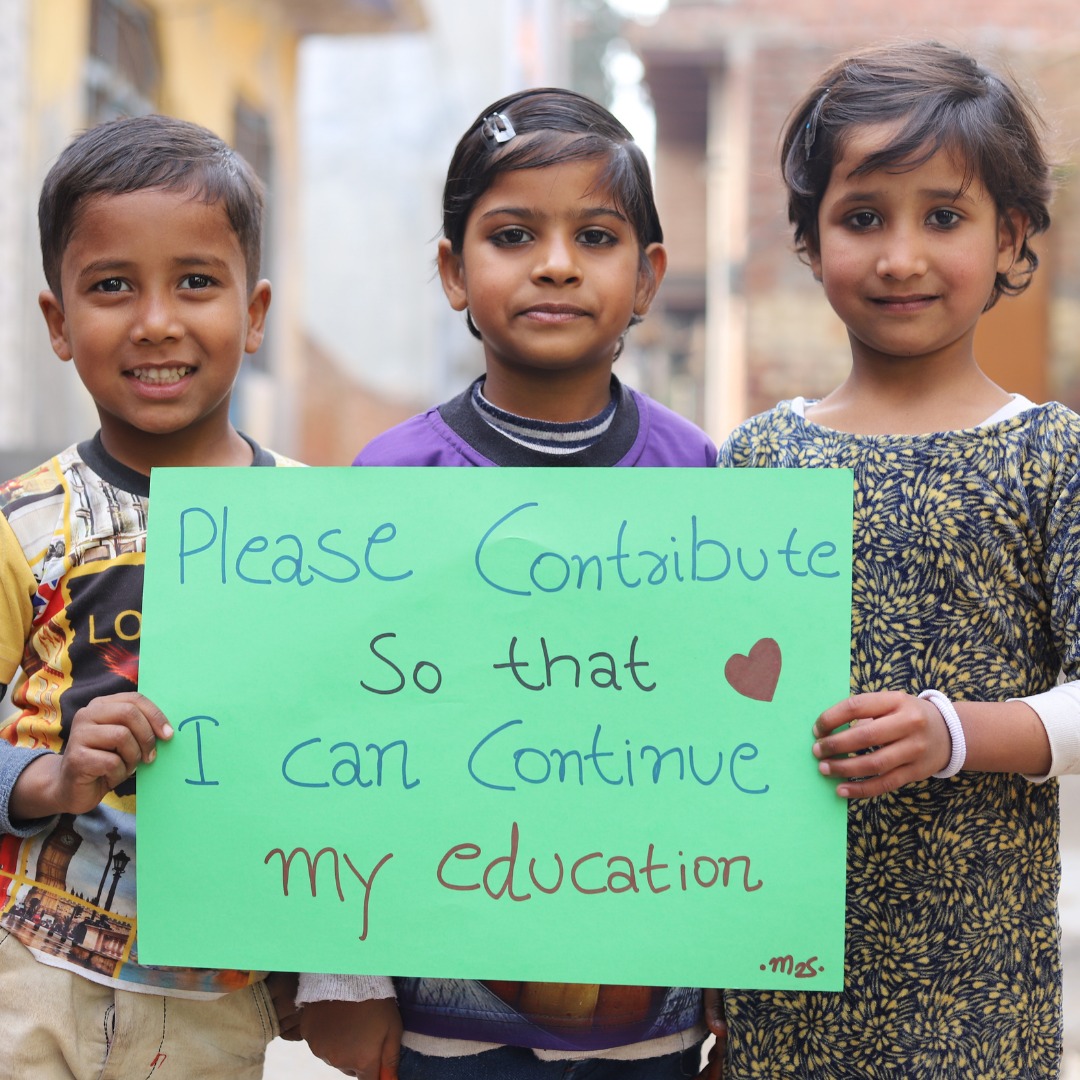 LO
Please Contribute
So that
I can Continue
my education
.m2s.